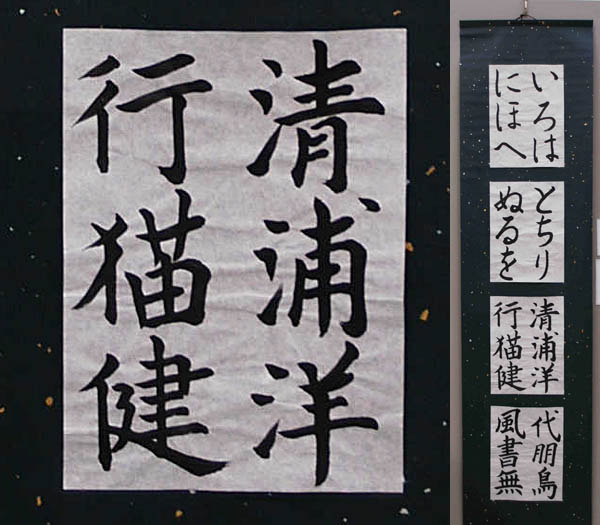 清浦洋
行猫健
いろは
にほへ
とちり
ぬるを
清浦洋
行猫健
代朋鳥
風書無